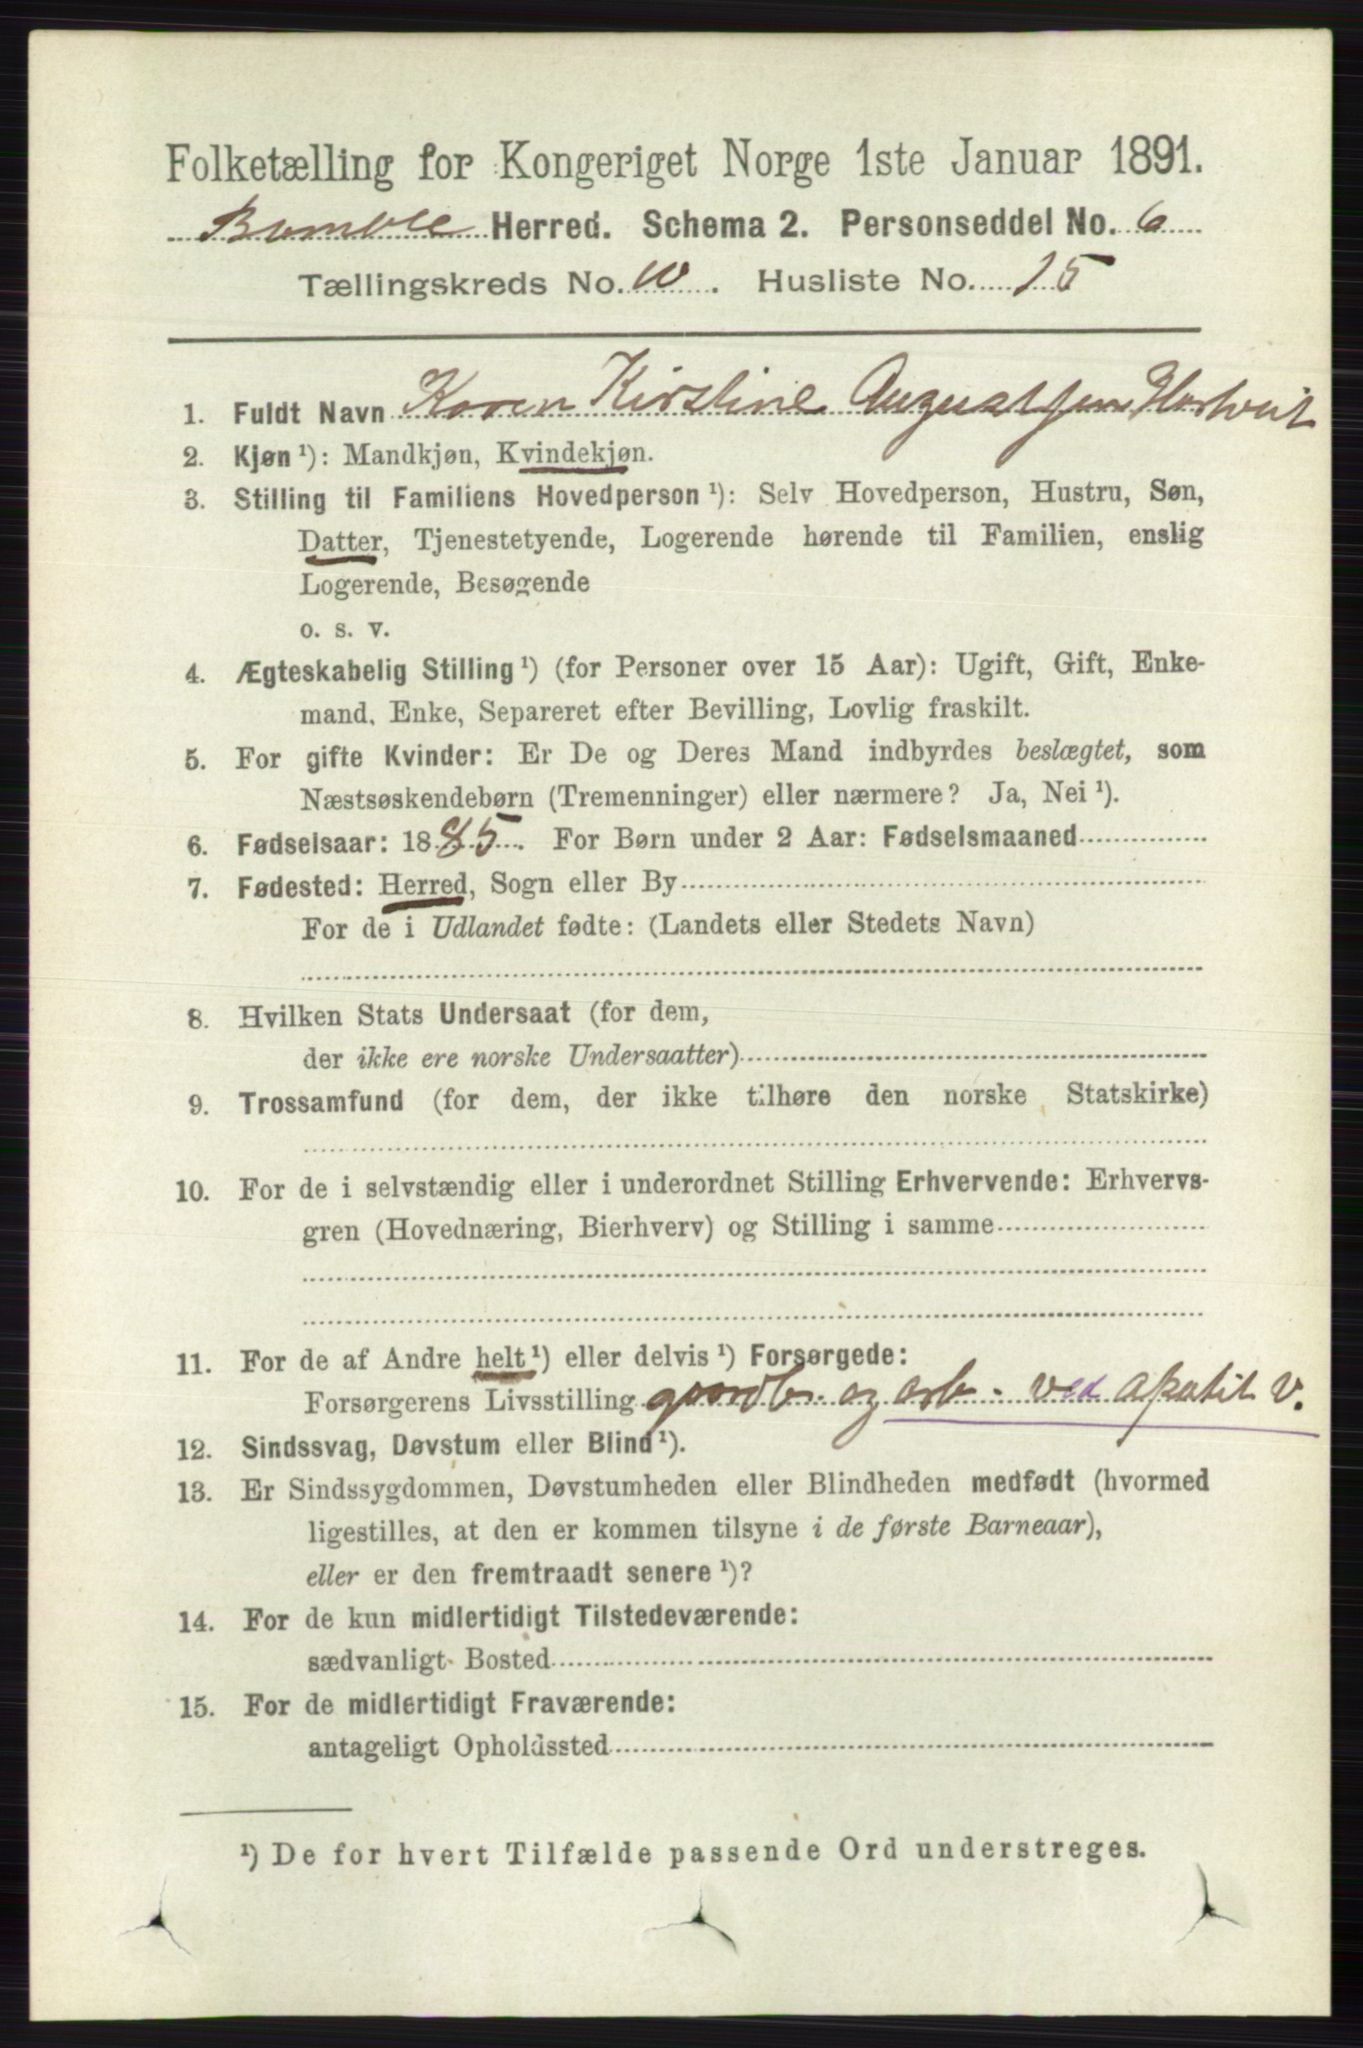 Folketælling for Kongeriget Norge 1ste Januar 1891.
Bamble Herred. Schema 2. Personseddel No. 6
Tællingskreds No. 10. Husliste No. 15
1. Fuldt Navn Karen Kirstine Augustsen Hartveit
2. Kjøn ¹): Mandkjøn, Kvindekjøn.
3. Stilling til Familiens Hovedperson ¹): Selv Hovedperson, Hustru, Søn,
Datter, Tjenestetyende, Logerende hørende til Familien, enslig
Logerende, Besøgende
o. s. v.
4. Ægteskabelig Stilling ¹) (for Personer over 15 Aar): Ugift, Gift, Enke-
mand, Enke, Separeret efter Bevilling, Lovlig fraskilt.
5. For gifte Kvinder: Er De og Deres Mand indbyrdes beslægtet, som
Næstsøskendebørn (Tremenninger) eller nærmere? Ja, Nei ¹).
6. Fødselsaar: 1885. For Børn under 2 Aar: Fødselsmaaned
7. Fødested: Herred, Sogn eller By
For de i Udlandet fødte: (Landets eller Stedets Navn)
8. Hvilken Stats Undersaat (for dem,
der ikke ere norske Undersaatter)
9. Trossamfund (for dem, der ikke tilhøre den norske Statskirke)
10. For de i selvstændig eller i underordnet Stilling Erhvervende: Erhvervs-
gren (Hovednæring, Bierhverv) og Stilling i samme
11. For de af Andre helt ¹) eller delvis ¹) Forsørgede:
Forsørgerens Livsstilling gaardb. og arb. ved apatit v.
12. Sindssvag, Døvstum eller Blind ¹).
13. Er Sindssygdommen, Døvstumheden eller Blindheden medfødt (hvormed
ligestilles, at den er kommen tilsyne i de første Barneaar),
eller er den fremtraadt senere ¹)?
14. For de kun midlertidigt Tilstedeværende:
sædvanligt Bosted
15. For de midlertidigt Fraværende:
antageligt Opholdssted
¹) De for hvert Tilfælde passende Ord understreges.